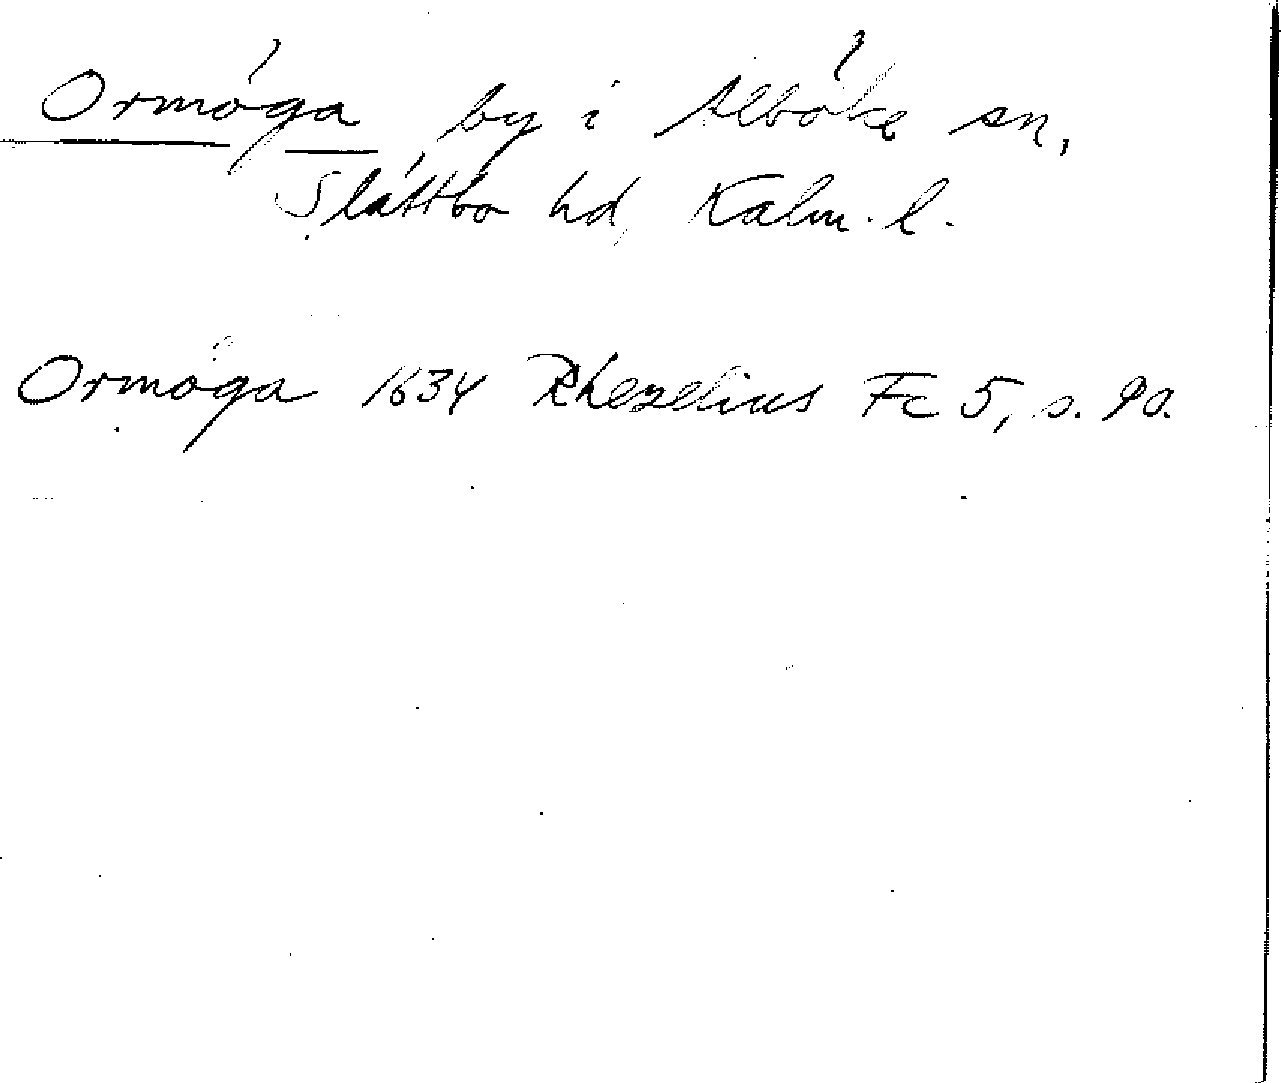 Ormöga by i Alböke sn,
Slättbo hd, Kalm. l.
Ormöga 1634 Rhezelius Fc 5, s. 90.